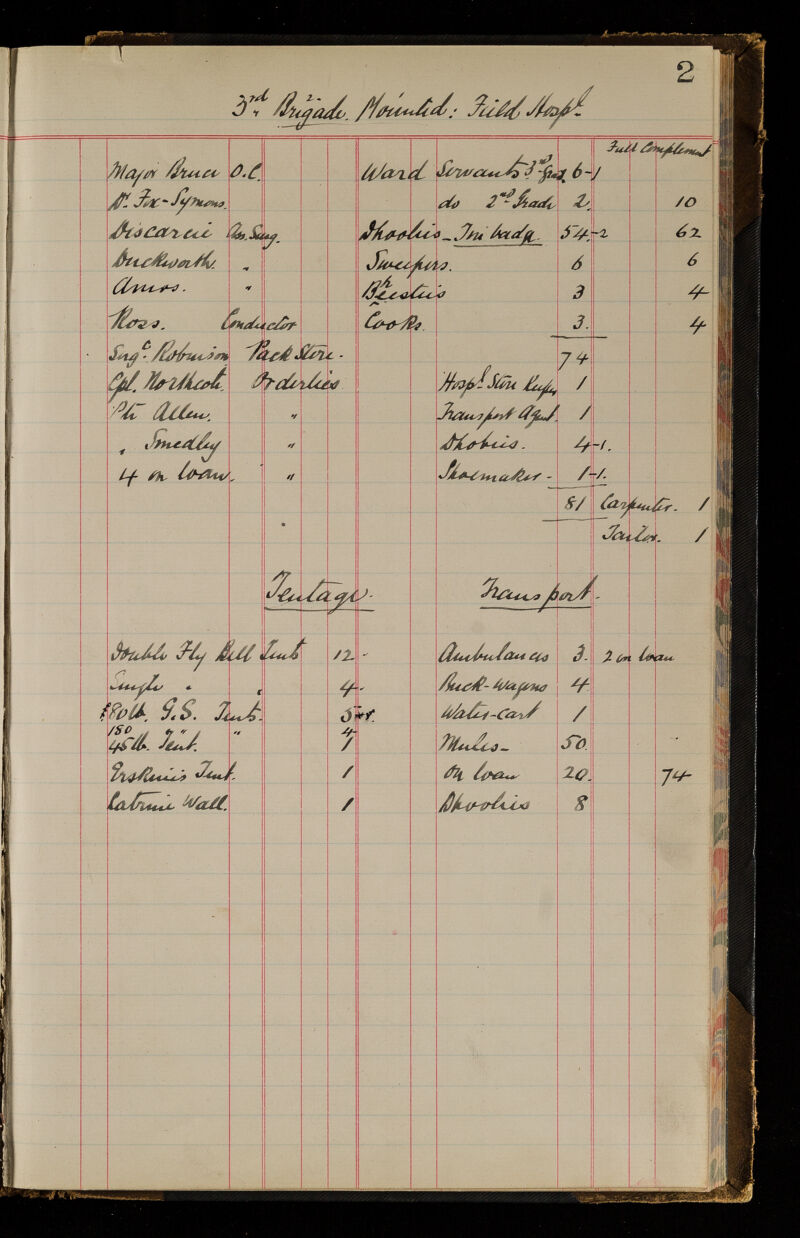 2
3rd Brigade. Mounted: Field Hospl.
Full Complement
Major Bruce O.C. Ward Servants 3rd Grad. 6-1
Dr. Fox-Symons. do 2nd Grade 2. 10
Discarcie Ass. Surg. Dhoolies - 54.-2 62
Duckworth. " Sweepers. 6 6
Amos. " Bheesties 3 4
Ross. Conductor Cooks 3. 4
Sergt. Robinson Pack Store - 74
Cpl. Northcote. Orderlies Hospl. Store Keeper 1
Pte Allen. " Transport Agent. 1
" Smedley " Dhobies. 4-1.
4 on loan. " Shoemaker - 1-1.
81 Carpenter. 1
Tailor. 1
Tentage. Transport.
Double Fly Bell Tents 12 - Ambulances 3. 2 on loan
Single " " 4 - Buck-Wagons 4
80 lb. G.S. Tents. 5 Water-Cart 1
180 " " 4
45 lb. Tent. 1 Mules - 50.
Erskine's Tent. 1 On loan 20. 74
Latrine Wall. 1 Dhoolies 8